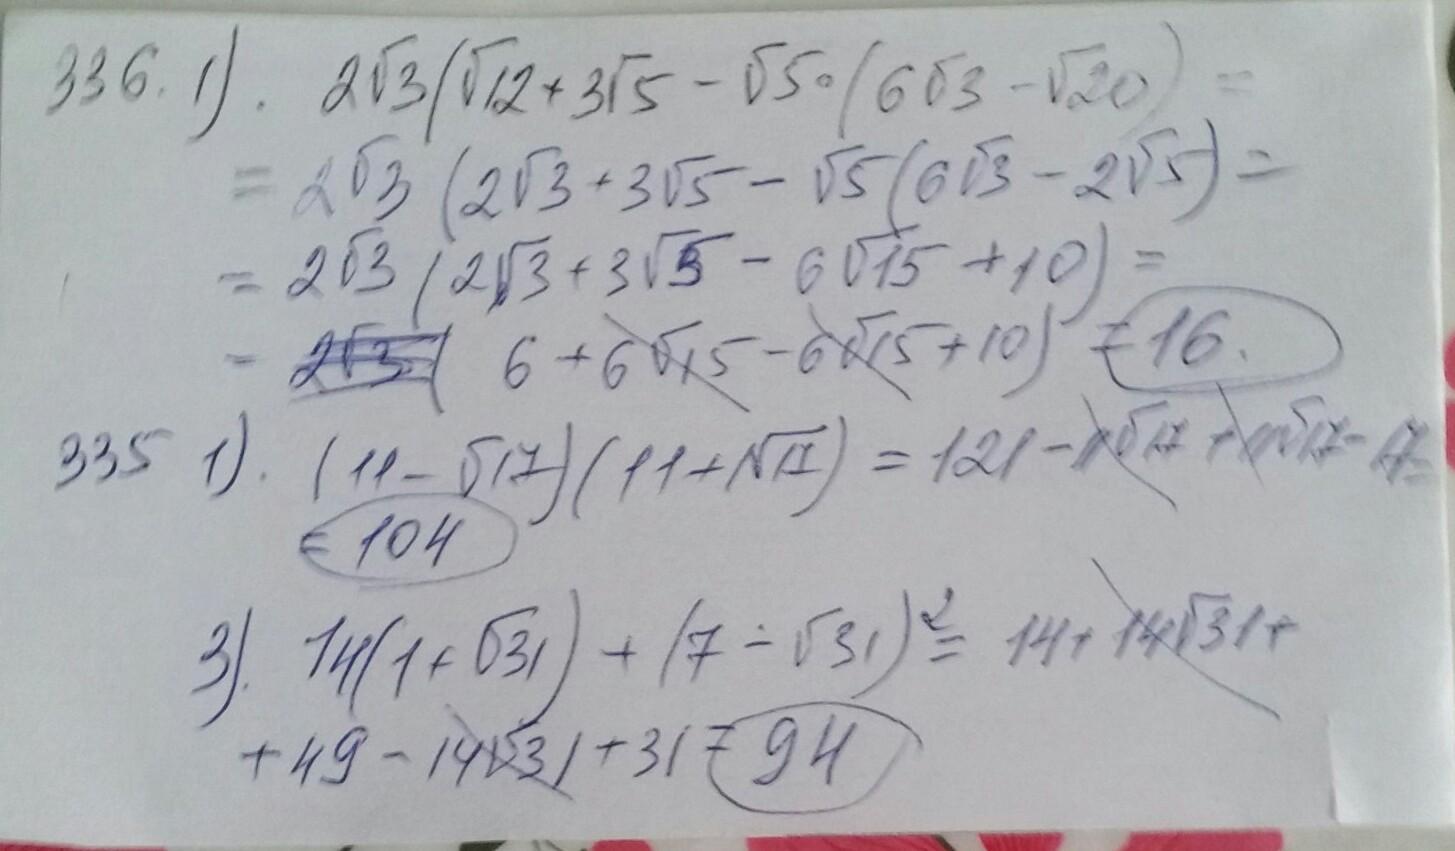 336. 1). 2√3(√12+3√5-√5·(6√3-√20)=
=2√3(2√3+3√5-√5(6√3-2√5)=
=2√3(2√3+3√5-6√15+10)=
= 2√3( 6+6√15-6√15+10) =16.
335 1). (11-√17)(11+√17)=121-11√17+11√17-17=
=104
3). 14(1+√31)+(7-√31)²=14+14√31+
+49-14√31+31=94